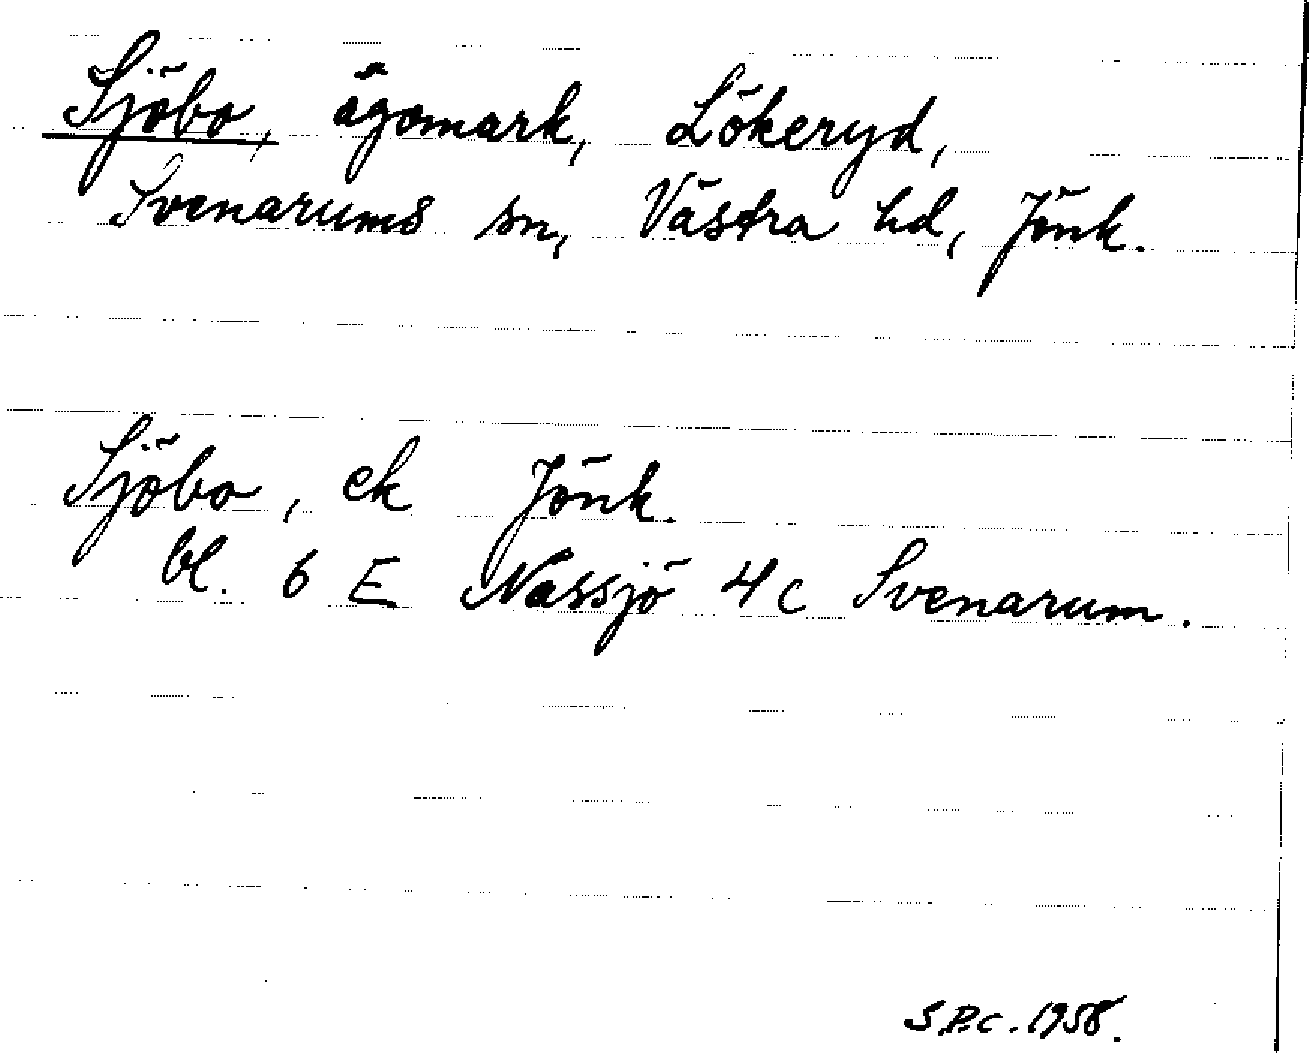 Sjöbo, ägomark, Lökeryd,
Svenarums sn, Västra hd, Jönk.
Sjöbo, ek Jönk.
bl. 6 E Nässjö 4c Svenarum.
S.P.C. 1958.